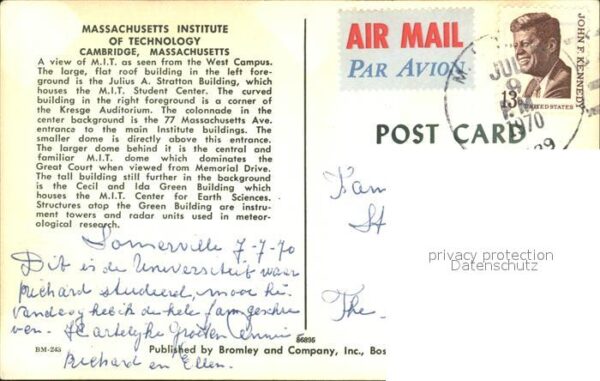 MASSACHUSETTS INSTITUTE
OF TECHNOLOGY
CAMBRIDGE, MASSACHUSETTS
A view of M.I.T. as seen from the West Campus.
The large, flat roof building in the left fore-
ground is the Julius A. Stratton Building, which
houses the M.I.T. Student Center. The curved
building in the right foreground is a corner of
the Kresge Auditorium. The colonnade in the
center background is the 77 Massachusetts Ave.
entrance to the main Institute buildings. The
smaller dome is directly above this entrance.
The larger dome behind it is the central and
familiar M.I.T. dome which dominates the
Great Court when viewed from Memorial Drive.
The tall building still further in the background
is the Cecil and Ida Green Building which
houses the M.I.T. Center for Earth Sciences.
Structures atop the Green Building are instru-
ment towers and radar units used in meteor-
ological research.
Somerville 7-7-70
Dit is de Universiteit waar
Richard studeerd, mooi hè.
vandaag heb ik de hele fam geschre
ven. Hartelijke Groeten Annie
Richard en Ellen.
BM-245
Published by Bromley and Company, Inc., Bos
86896
AIR MAIL
PAR AVION
JUL
1970
JOHN F. KENNEDY
13c
UNITED STATES
POST CARD
Fam
St
The
privacy protection
Datenschutz